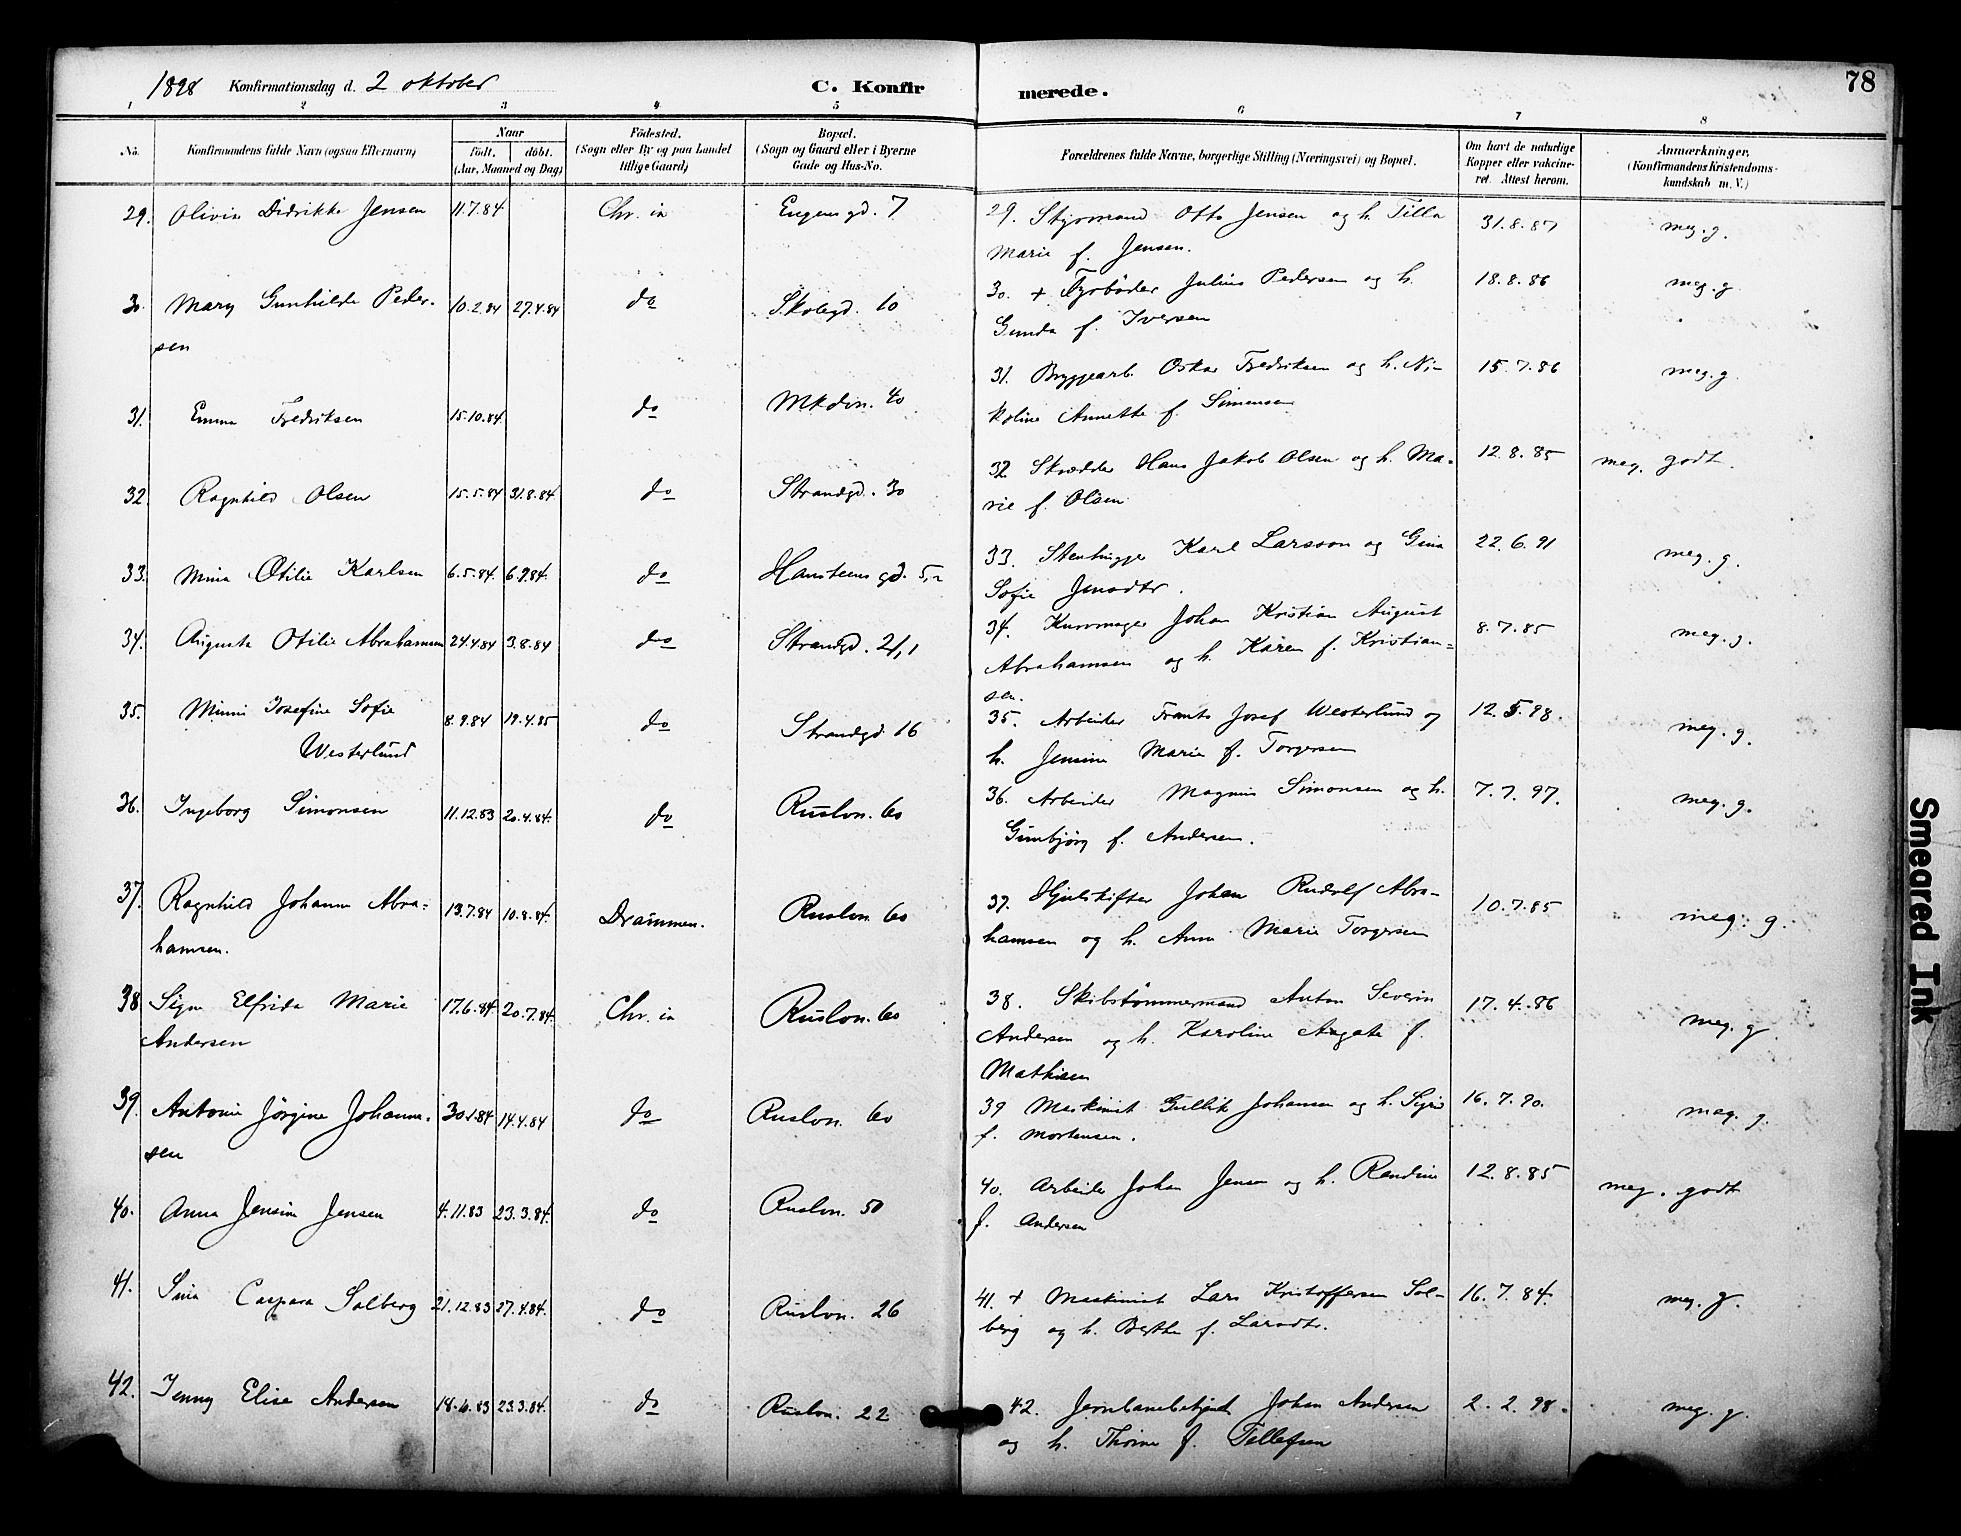 1898 Konfirmationsdag d. 2 oktober C. Konfir
merede. 78
1 2 3 4 5 6 7 8
No.
Konfirmandens fulde Navn (ogsaa Efternavn).
Naar
födt, döbt.
(Aar, Maaned og Dag)
Födested.
(Sogn eller By og paa Landet
tillige Gaard)
Bopæl.
(Sogn og Gaard eller i Byerne
Gade og Hus-No.
Forældrenes fulde Navne, borgerlige Stilling (Næringsvei) og Bopæl.
Om havt de naturlige
Kopper eller vakcine-
ret. Attest herom.
Anmærkninger.
(Konfirmandens Kristendoms-
kundskab m. V.)
29. Olivia Didrikke Jensen 11.7.84 Chr. ia Eugensgd. 7
29. Styrmand Otto Jensen og h. Tilla 31.8.87 meg. g.
Marie f. Jensen.
30. Mary Gunhilda Peder- 10.2.84 27.4.84 do Skolegd. 10
sen
30. + Fyrbøder Julius Pedersen og h. 18.8.86 meg. g
Gunda f. Iversen
31. Emma Fredriksen 15.10.84 do Mkdvn. 40
31. Bryggearb. Oskar Fredriksen og h. Ni- 15.7.86 meg. g.
koline Annette f. Simensen
32. Ragnhild Olsen 15.5.84 31.8.84 do Strandgd. 30
32 Skrædder Hans Jakob Olsen og h. Ma- 12.8.85 meg. godt.
rie f. Olsen
33. Mina Otilie Karlsen 6.5.84. 6.9.84. do Hansteens gd. 5
33. Stenhugger Karl Larsson og Gina 22.6.91 meg. g.
Sofie Jensdtr.
34. Augusta Otilie Abrahamsen 24.4.84 3.8.84 do Strandgd. 21
34. Kurvmager Johan Kristian August 8.7.85 meg. g.
Abrahamsen og h. Karen f. Kristian=
sen.
35. Minni Josefine Sofie 8.9.84 19.4.85 do Strandgd. 16
Westerlund
35. Arbeider Frants Josef Westerlund og 12.5.98. meg. g.
h. Jensine Marie f. Torgersen
36. Ingeborg Simonsen 11.12.83 20.4.84. do Ruslvn. 60
36. Arbeider Magnus Simonsen og h. 7.7.97. meg. g.
Gunbjørg f. Andersen.
37. Ragnhild Johanne Abra= 13.7.84 10.8.84. Drammen. Ruslvn. 60
hamsen.
37. Hjulskifter Johan Rudolf Abra- 10.7.85 meg. g.
hamsen og h. Anna Marie Torgersen
38 Signe Elfrida Marie 17.6.84. 20.7.84. Chr. ia Ruslvn. 60
Andersen
38. Skibstømmermand Anton Severin 17.4.86 meg. g.
Andersen og h. Karoline Aagate f.
Mathisen
39. Antonie Jörgine Johanne- 30.1.84 14.4.84 do Ruslvn. 60
sen
39 Maskinist Gullik Johansen og h. Sigrid 16.7.90. meg. g.
f. Mortensen.
40. Anna Jensine Jensen 4.11.83 23.3.84. do Ruslvn. 50
40. Arbeider Johan Jensen og h. Randine 12.8.85 meg. godt
f. Andersen
41. Sina Caspara Solberg 21.12.83 27.4.84. do Ruslvn. 26
41. + Maskinist Lars Kristoffersen Sol- 16.7.84. meg. g.
berg og h. Berthe f. Larsdtr.
42. Jenny Elise Andersen 23.3.84. do Ruslvn. 22
42. Jernbanebetjent Johan Andersen 2.2.98. meg. g.
og h. Thorine f. Tellefsen
Smeared Ink